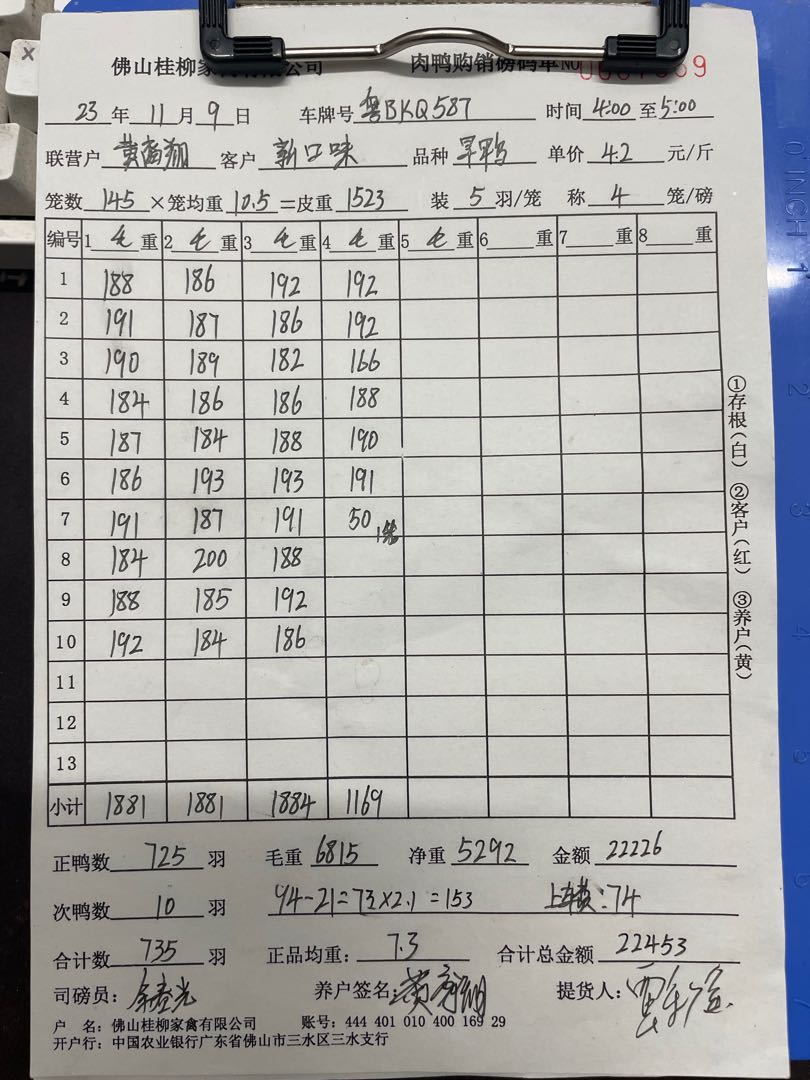 佛山桂柳家禽有限公司 肉鸭购销磅码单 NO
23 年 11 月 9 日 车牌号 粤BKQ587 时间 4:00 至 5:00
联营户 客户 新口味 品种 单价 4.2 元/斤
笼数 145 ×笼均重 10.5 =皮重 1523 装 5 羽/笼 称 4 笼/磅
编号 1 毛 重 2 毛 重 3 毛 重 4 毛 重 5 毛 重 6 重 7 重 8 重
1 188 186 192 192
2 191 187 186 192
3 190 189 182 166
4 184 186 186 188
5 187 184 188 190
6 186 193 193 191
7 191 187 191 50 1笼
8 184 200 188
9 188 185 192
10 192 184 186
11
12
13
小计 1881 1881 1884 1169
正鸭数 725 羽 毛重 6815 净重 5292 金额 22226
次鸭数 10 羽 94-21=73×2.1=153 上车费:74
合计数 735 羽 正品均重: 7.3 合计总金额 22453
司磅员: 养户签名: 提货人:
户 名: 佛山桂柳家禽有限公司 账号: 444 401 010 400 169 29
开户行: 中国农业银行广东省佛山市三水区三水支行
①存根(白) ②客户(红) ③养户(黄)
0 INCH 1
2
3
4
5